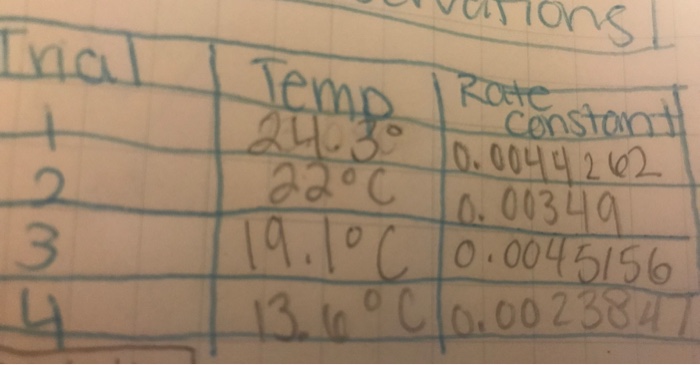 Trial Temp Rate Constant
1 24.3° 0.0044262
2 22°C 0.00349
3 19.1°C 0.0045156
4 13.6°C 0.0023847